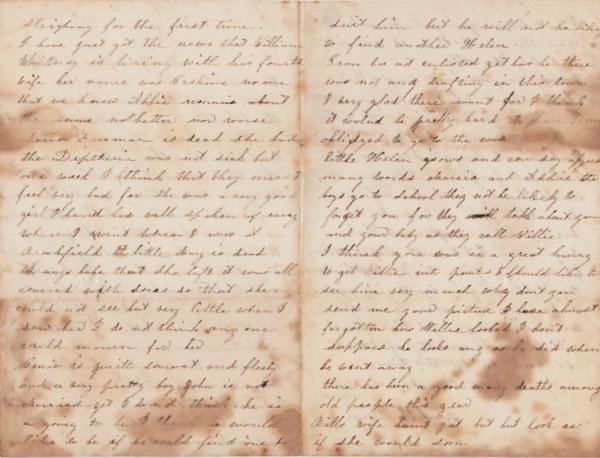 sleighing for the first time.
I have just got the news that William
Whitney is living with his fourth
wife her name was Erskine no one
that we know Abbie remains about
the same not better nor worse
Freeman is dead she had
the Diptheria was not sick but
one week I think that they must
feel very bad for she was a very good
girl I heard his well spoken of every
where I went when I was at
Brookfield little May is dead
the babe that she left it was all
covered with sores so that she
could not see but very little when I
saw her I do not think any one
could mourn for her
is quite smart and fleshy
and a very pretty boy John is not
married yet I do not think he is
a going to be I think he would
like to be if he could find one to
suit him but he will not be like
to find another Helen
has not enlisted yet has he there
was not and drafting in this town
I very glad there want for I think
it looked to pretty hard to have
oblidged to go to the war
little Helen grows and can say
many words and Addie the
boys go to School they not be likely to
forget you for they talk about you
and your baby as they call Willie
I think you was in a great hurry
to get Willie into pants I should like to
see him very much why dont you
send me your picture I have almost
forgotten how Willie looked I dont
suppose he looks any as he did when
he went away
there has been a good many deaths among
old people this year
Bills wife haint yet but but look as
if she would soon